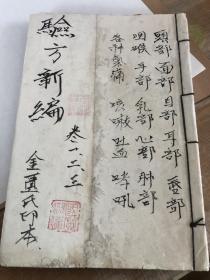 頭部 面部 目部 耳部 部
咽喉 手部 乳部 心部 肺部
各種氣痛 咳嗽 吐血 哮吼
騐方新編
卷一二三
金匱氏印本